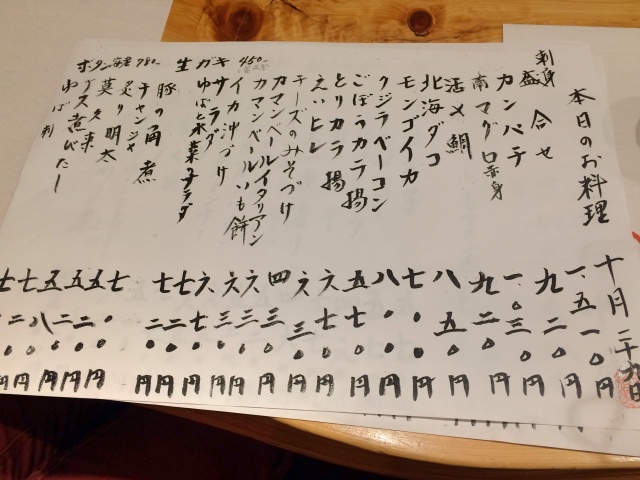 本日のお料理
十月二十九日
刺身盛合せ
一、五一〇円
カンパチ
九二〇円
南マグロ赤身
一、〇三〇円
活〆鯛
九二〇円
北海ダコ
八五〇円
モンゴイカ
七〇〇円
クジラベーコン
八〇〇円
ごぼうカラ揚
五七〇円
とりカラ揚
六七〇円
えいヒレ
六三〇円
チーズのみそづけ
四〇〇円
カマンベールイタリアン
六三〇円
カマンベールいも餅
六三〇円
イカ沖づけ
六三〇円
サラダ
六七〇円
ゆばと水菜サラダ
七二〇円
豚の角煮
七二〇円
チャンジャ
七〇〇円
炙り明太
五二〇円
五二〇円
煮びたし
五八〇円
ゆば刺
七二〇円
生ガキ 450
ボタン海老 780